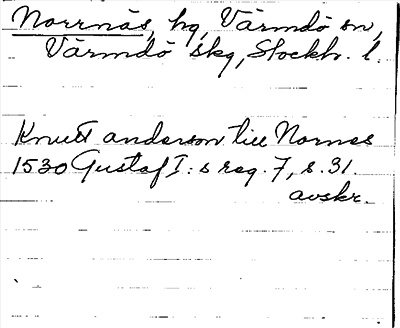 Norrnäs, hg, Värmdö sn,
Värmdö skg, Stockh. l.
Knutt anderson till Nornes
1530 Gustaf I:s reg. 7, s. 31.
avskr.